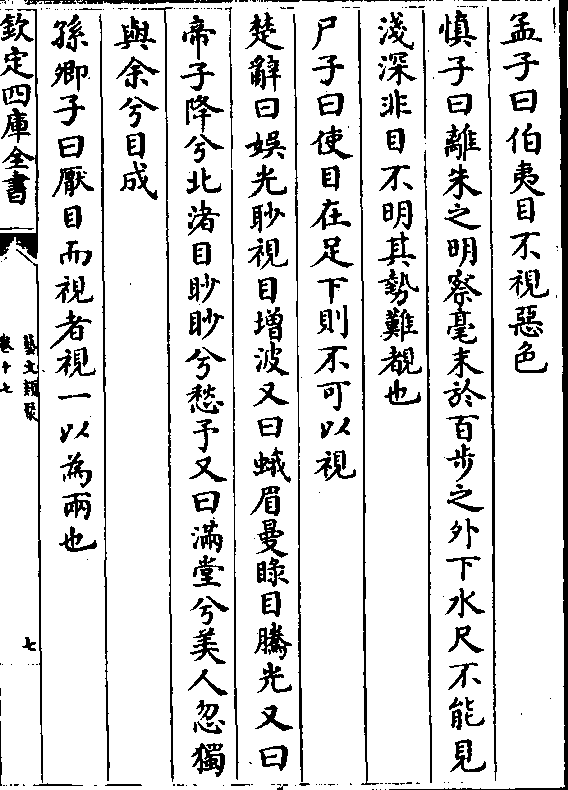 孟子曰伯夷目不視惡色
慎子曰離朱之明察毫末於百步之外下水尺不能見
淺深非目不明其勢難覩也
尸子曰使目在足下則不可以視
楚辭曰娛光眇視目增波又曰蛾眉曼睩目騰光又曰
帝子降兮北渚目眇眇兮愁予又曰滿堂兮美人忽獨
與余兮目成
孫卿子曰厭目而視者視一以為兩也
欽定四庫全書
藝文類聚
卷十七
七